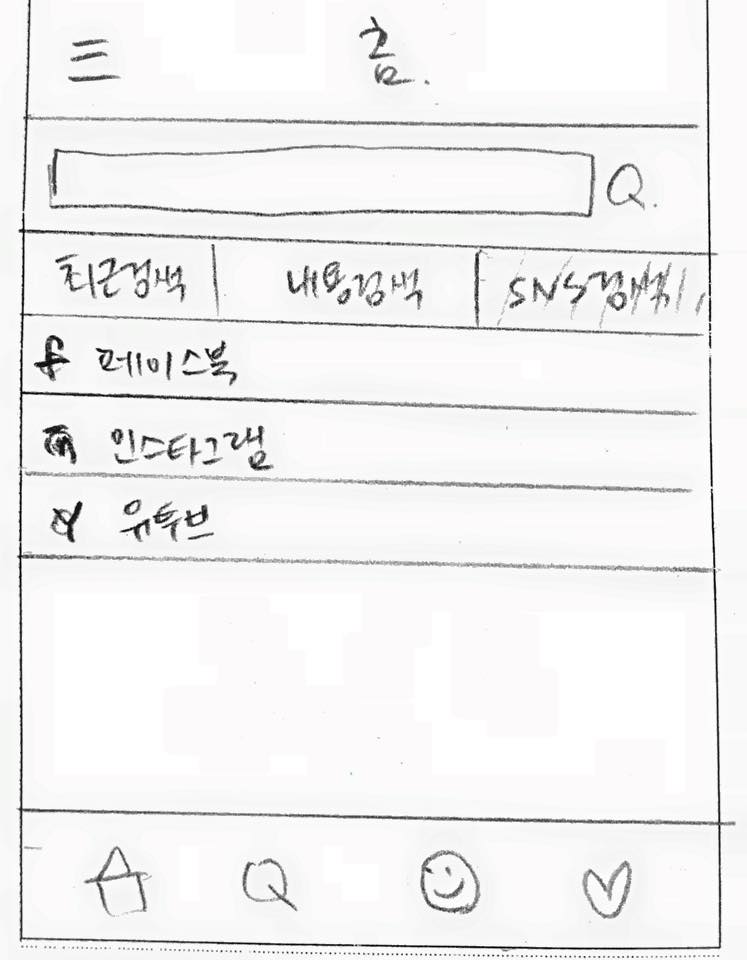 홈.
최근검색 내용검색 SNS검색
f 페이스북
인스타그램
유투브